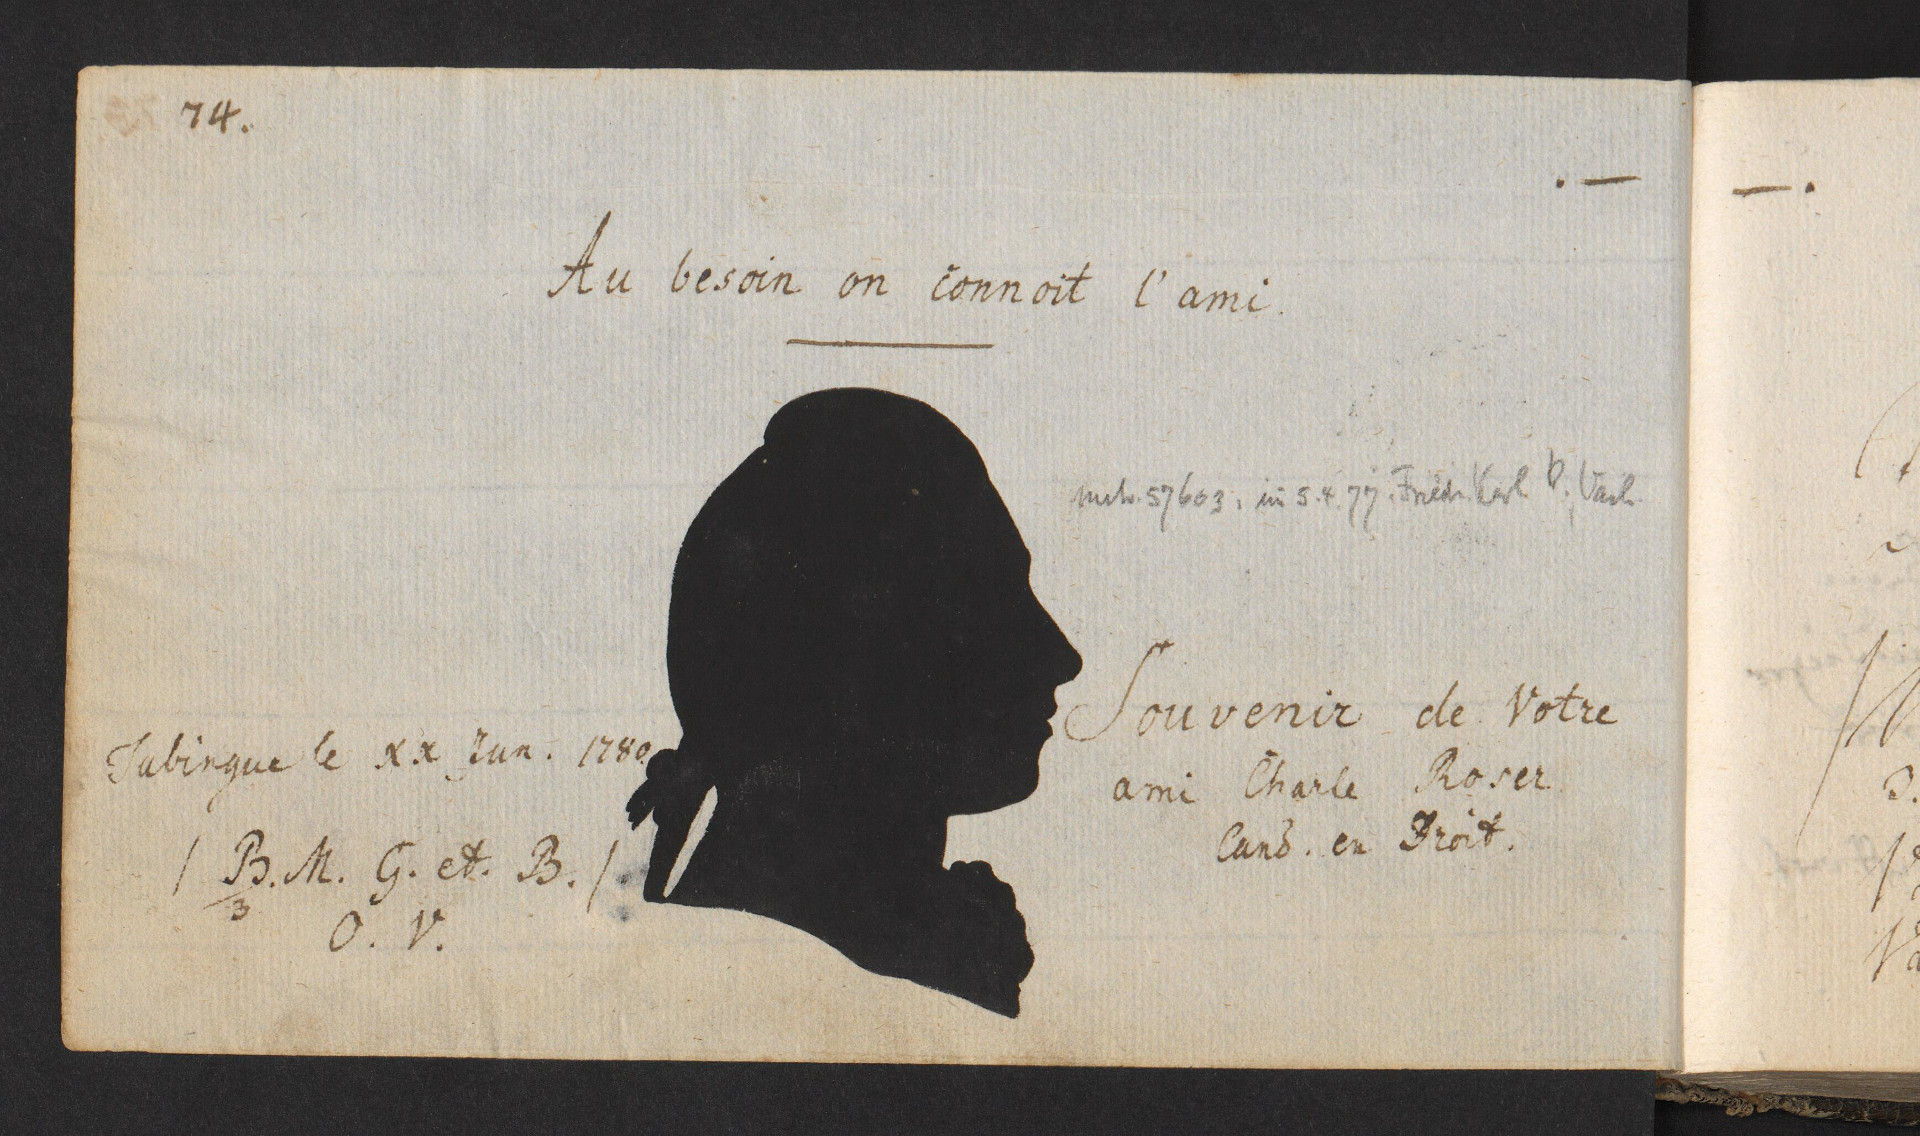 74.
. —
— .
Au besoin on connoit l'ami.
57603. in S. 4. 77. Friedr. Karl
Souvenir de Votre
ami Charle Roser
Cand. en Droit.
Tubingue le xx Jun. 1780
/ B. M. G. et. B. /
3
O. V.